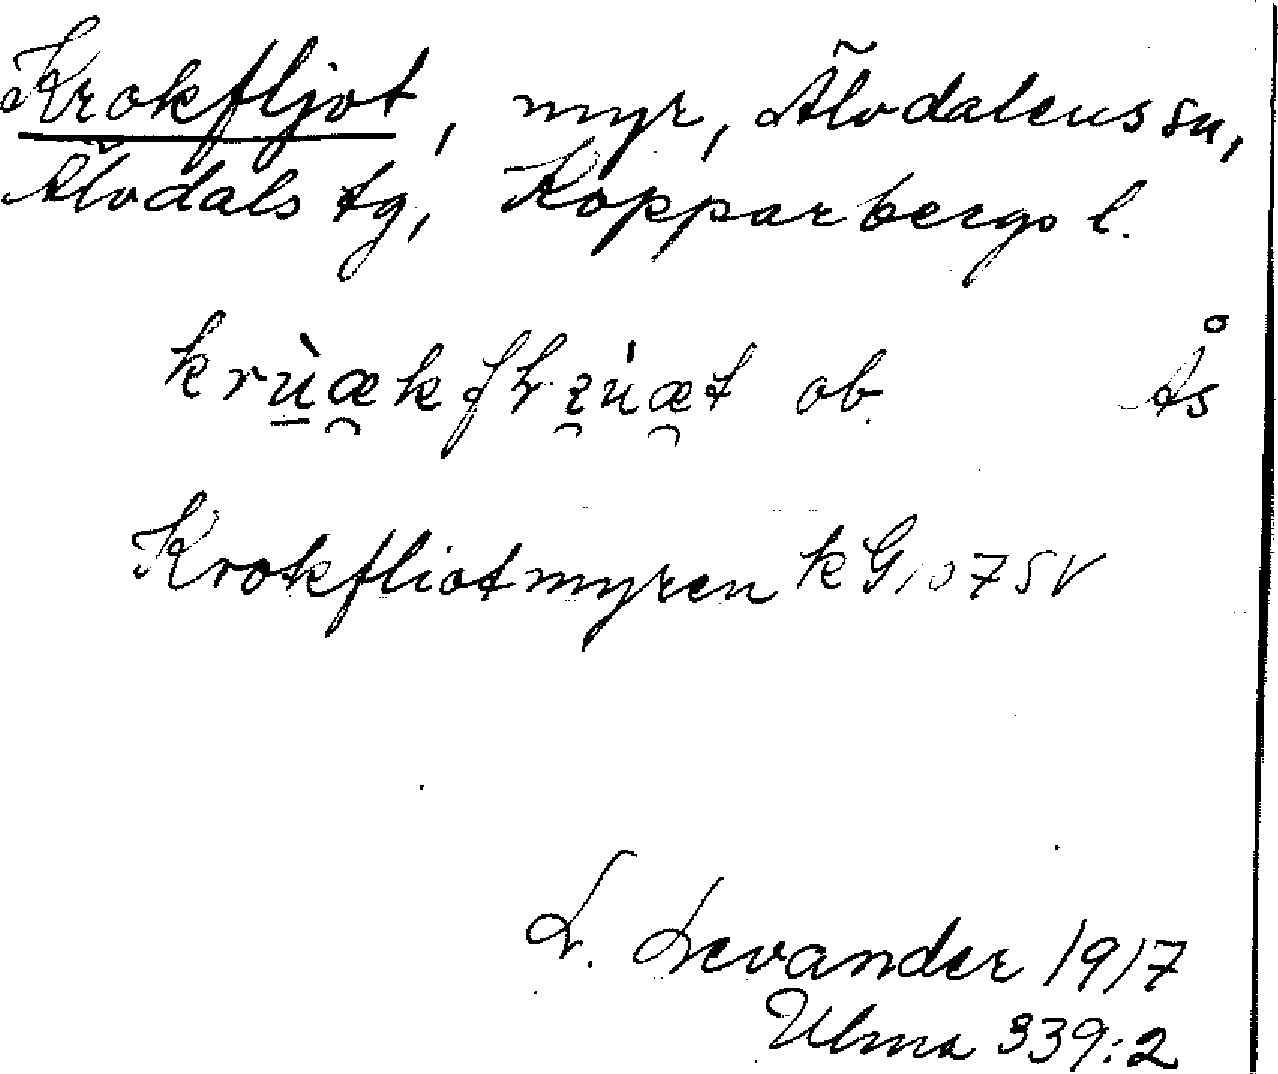 Krokfljot, myr, Älvdalens sn,
Älvdals tg, Kopparbergs l.
ob. Ås
Krokfliotmyren k G 107 SV
L. Levander 1917
Ulma 339:2